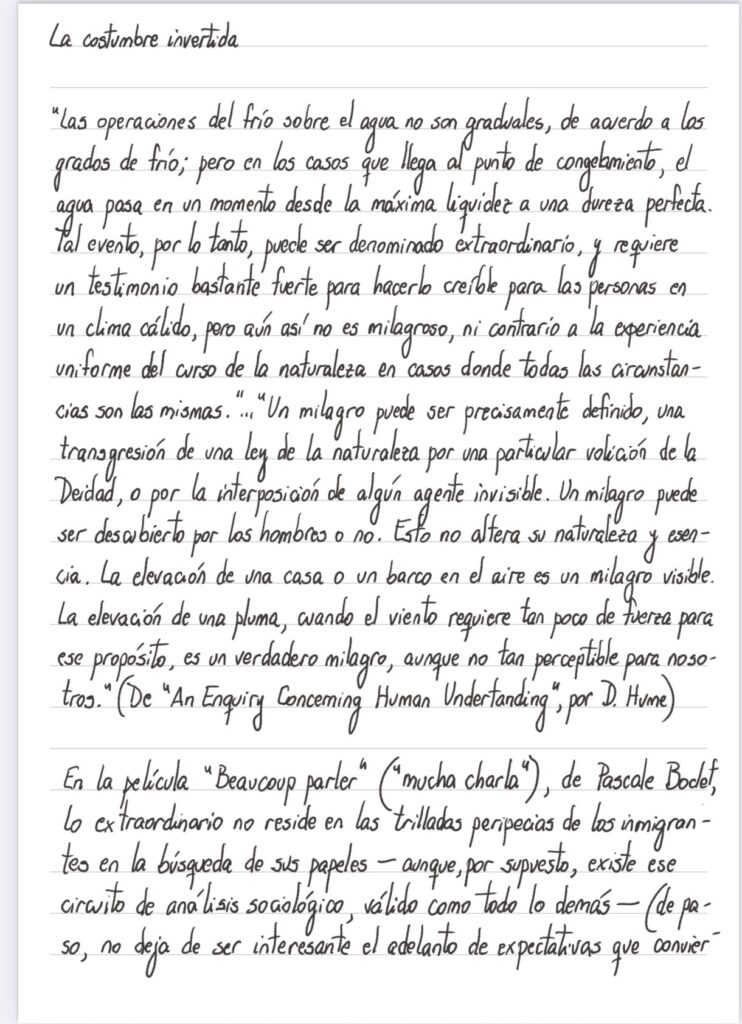 La costumbre invertida
"Las operaciones del frío sobre el agua no son graduales, de acuerdo a los
grados de frío; pero en los casos que llega al punto de congelamiento, el
agua pasa en un momento desde la máxima liquidez a una dureza perfecta.
Tal evento, por lo tanto, puede ser denominado extraordinario, y requiere
un testimonio bastante fuerte para hacerlo creíble para las personas en
un clima cálido, pero aún así no es milagroso, ni contrario a la experiencia
uniforme del curso de la naturaleza en casos donde todas las circunstan-
cias son las mismas."..."Un milagro puede ser precisamente definido, una
transgresión de una ley de la naturaleza por una particular volición de la
Deidad, o por la interposición de algún agente invisible. Un milagro puede
ser descubierto por los hombres o no. Esto no altera su naturaleza y esen-
cia. La elevación de una casa o un barco en el aire es un milagro visible.
La elevación de una pluma, cuando el viento requiere tan poco de fuerza para
ese propósito, es un verdadero milagro, aunque no tan perceptible para noso-
tros." (De "An Enquiry Concerning Human Undertanding", por D. Hume)
En la película "Beaucoup parler" ("mucha charla"), de Pascale Bodet,
lo extraordinario no reside en las trilladas peripecias de los inmigran-
tes en la búsqueda de sus papeles — aunque, por supuesto, existe ese
circuito de análisis sociológico, válido como todo lo demás — (de pa-
so, no deja de ser interesante el adelanto de expectativas que convier-